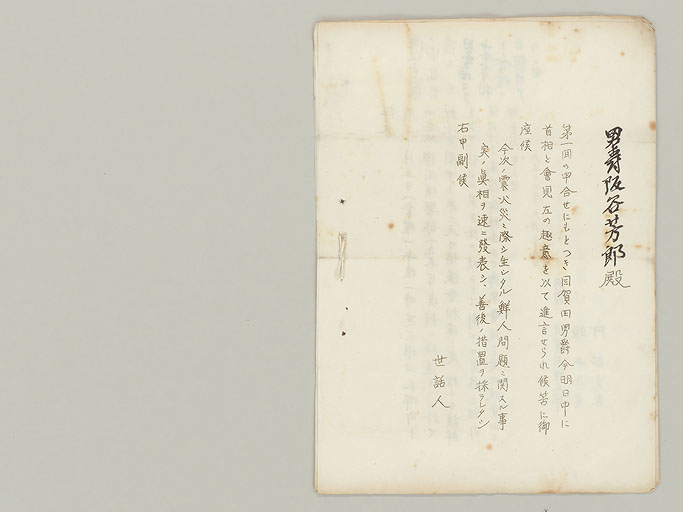 男爵阪谷芳郎殿
第一回の申合せにもとつき目賀田男爵今明日中に
首相と會見左の趣意を以て進言せられ候筈に御
座候
今次ノ震火災ニ際シ生シタル鮮人問題ニ関スル事
実ノ眞相ヲ速ニ發表シ、善後ノ措置ヲ採ラレタシ
右申副候
世話人